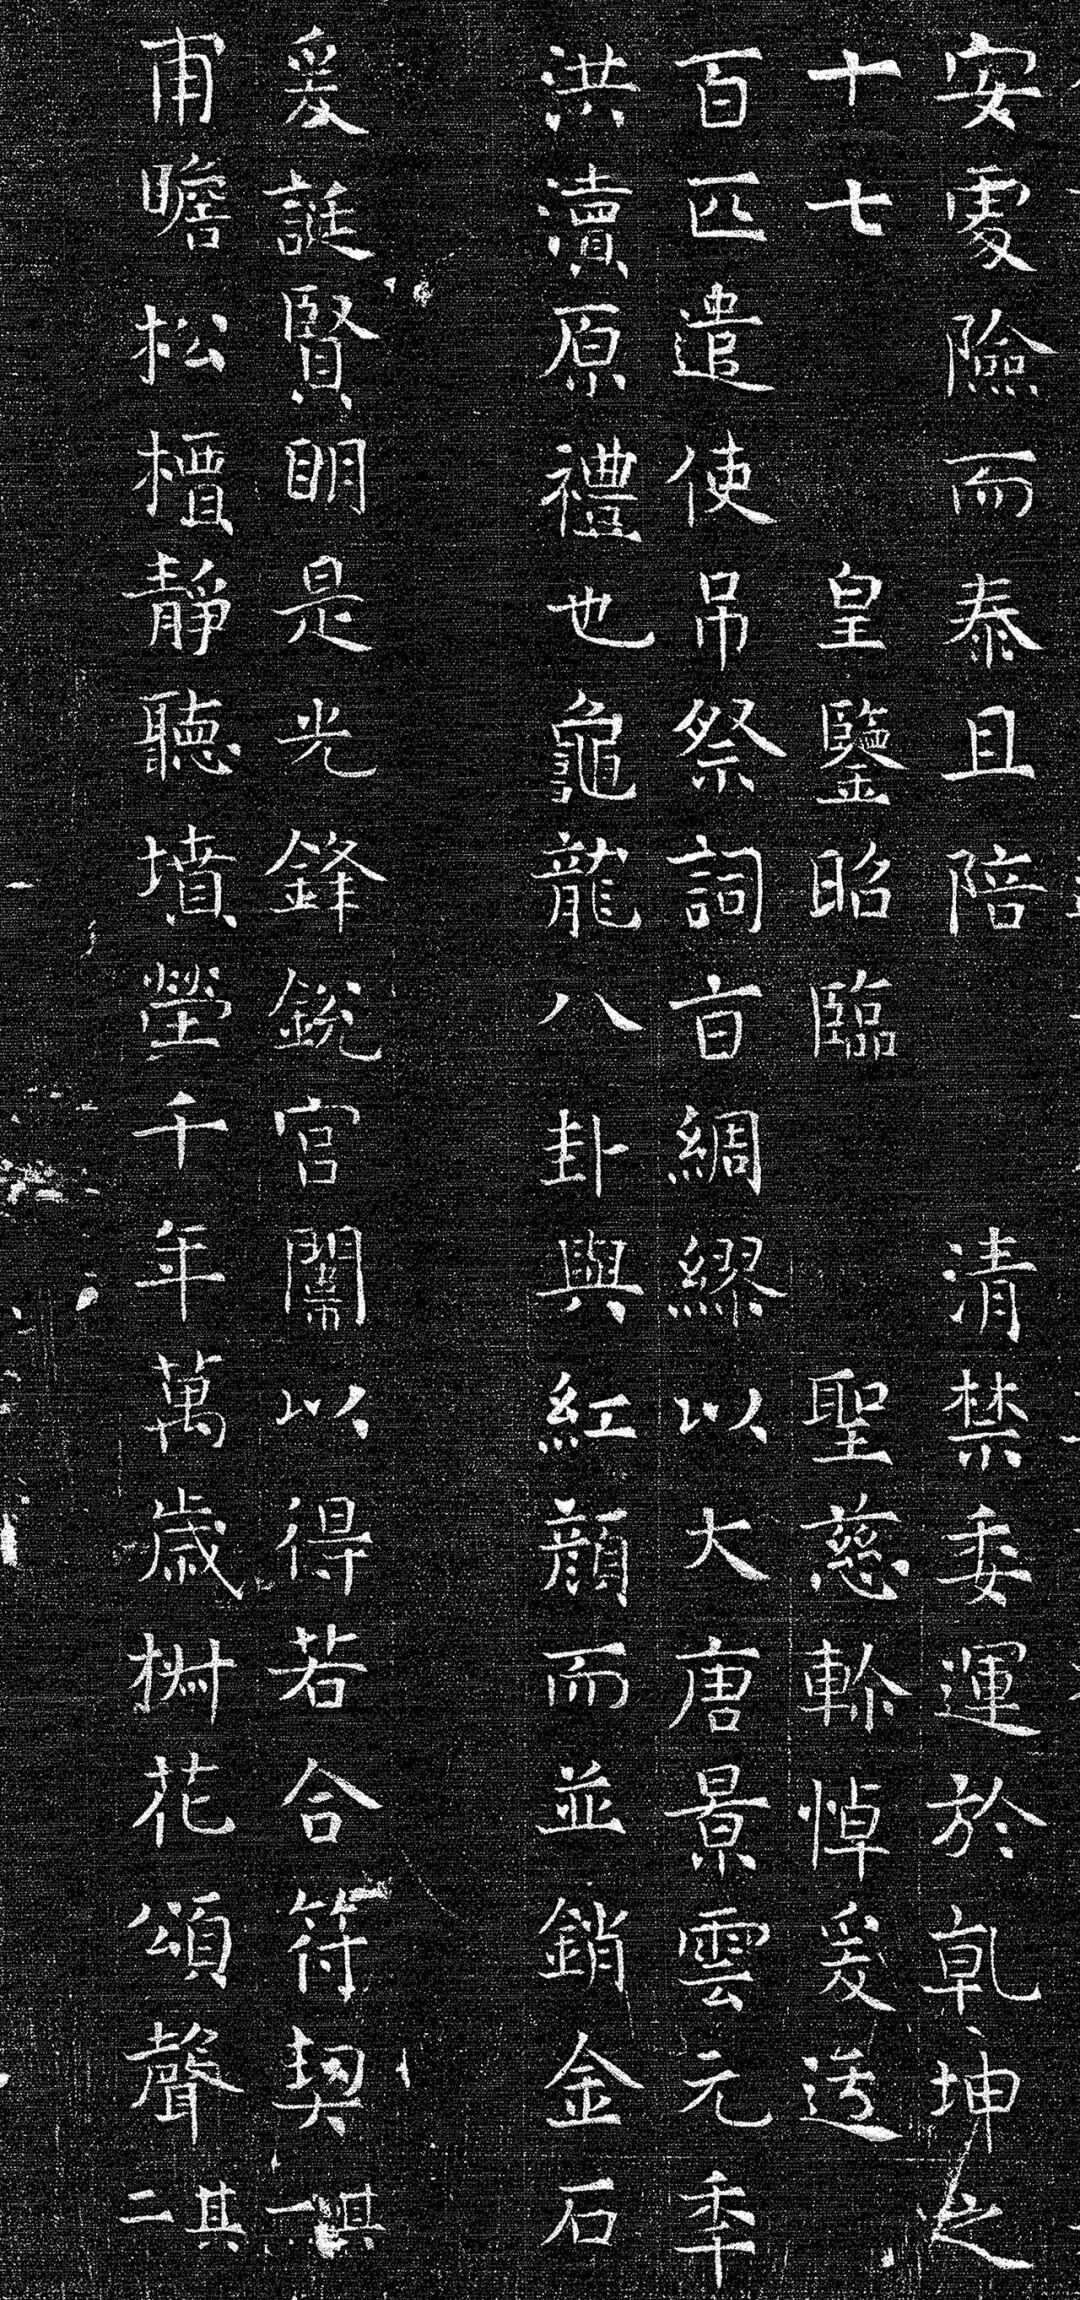 安處險而泰且陪清禁委運於乹坤之
十七皇鑒昭臨聖慈軫悼爰送
百匹遣使吊祭詞㫖綢繆以大唐景雲元秊
洪瀆原禮也龜龍八卦與紅顔而並銷金石
爰誕賢明是光鋒銳官闈以得若合符契其一
甫瞻松檟靜聽墳塋千年萬歳樹花頌聲其二